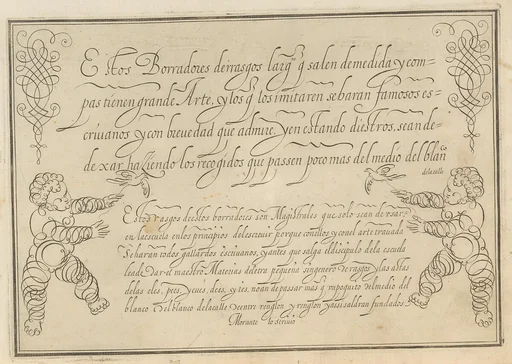 Estos Borradores de rrasgos largos q salen de medida y com-
pas tienen grande Arte, y los q los imitaren se haran famosos es-
criuanos y con breuedad que admire. Y en estando diestros, sean de
dexar haziendo los recogidos que passen poco mas del medio del blanco
de la calle
Estos rasgos destos borradores son Magistrales que solo sean de usar
en la escuela en los principios del escriuir porque con ellos y con el arte
se haran todos gallardos escriuanos, y antes que salga el discipulo de la escuela
le ade dar el maestro Materias de letra pequeña sin genero de rasgos y las astas
de las eles, pees, y
blanco Del blanco de la calle de entre renglon y renglon y assi saldran fundados.
Morante lo escriuio